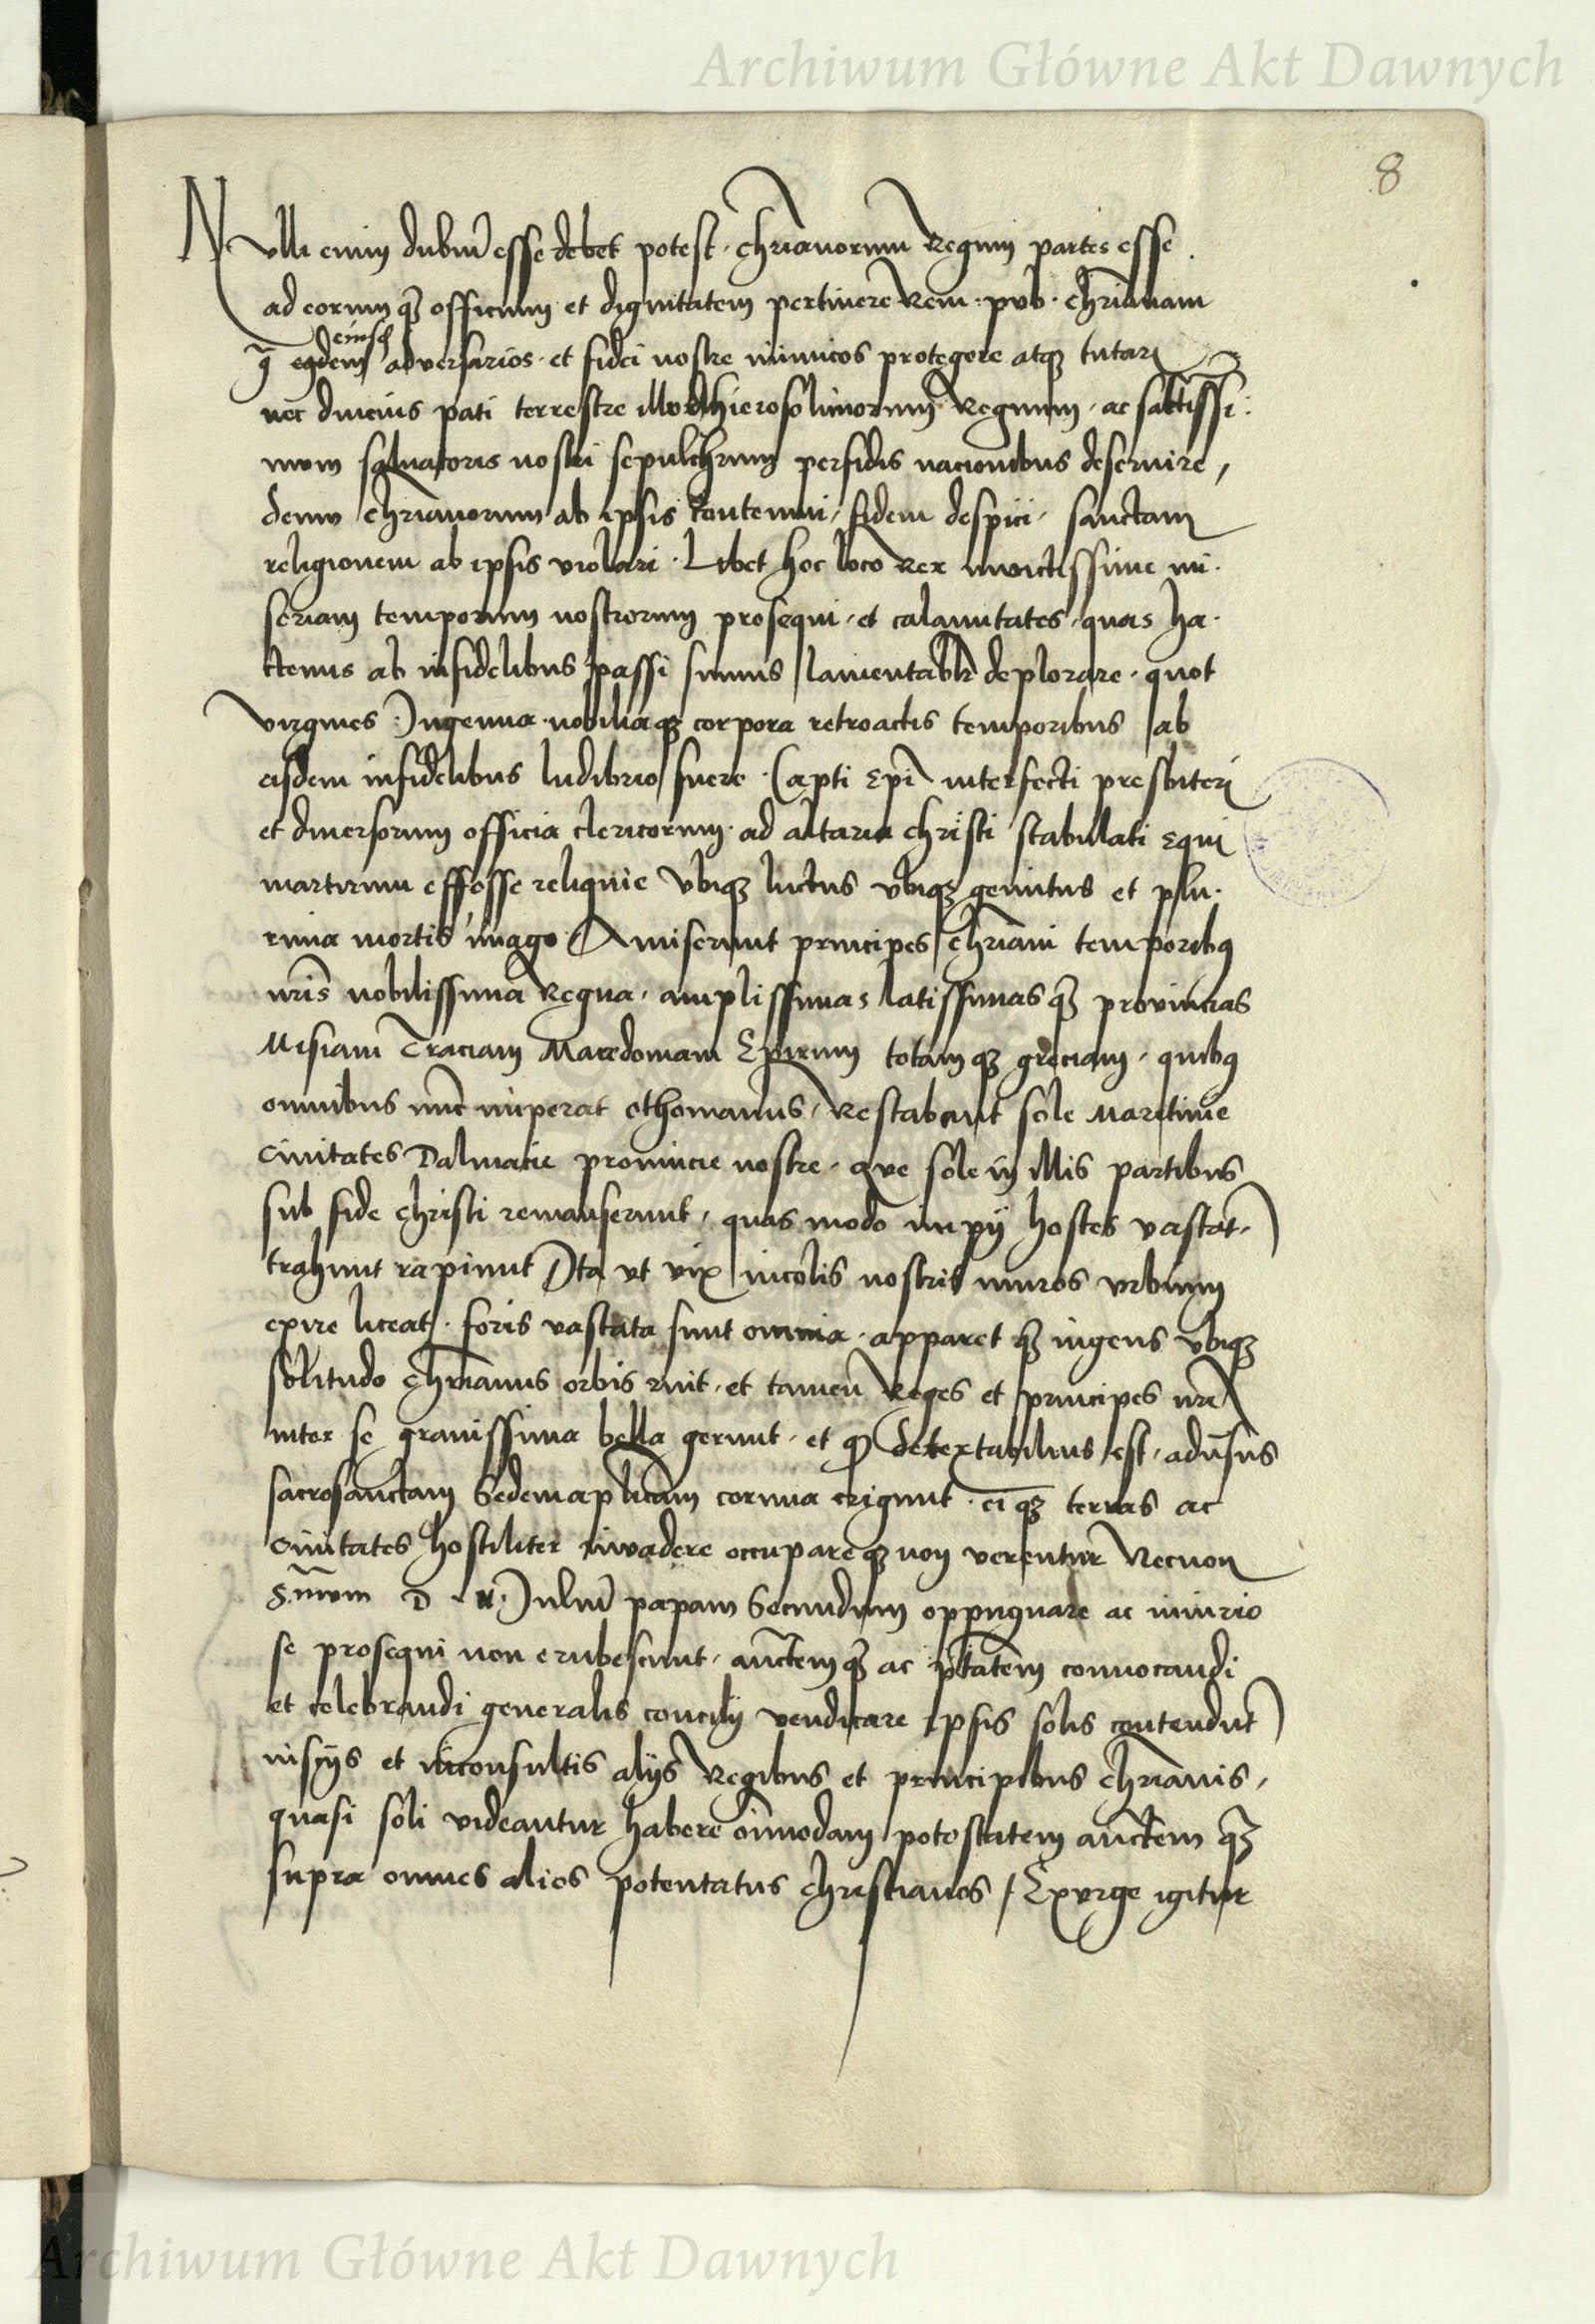 Archiwum Główne Akt Dawnych
8
Nulli enim dubiū esse debet potest · chrianorum Regum partes esse .
ad eorumqȝ officium et dignitatem pertinere Rem · pub · chrianam
eiusdē
adversarios · et fidei nostre inimicos protegere atqȝ tutari
nec diucius pati terrestre illud hierosolimorum Regnum · ac sāctissi:
mum saluatoris nostri sepulchrum perfidis nacionibus deseruire /
demum chrianorum ab ipsis contemni / fidem despici · sanctam
religionem ab ipsis violari · Libet hoc loco Rex inuictissime mi·
seriam temporum nostrorum prosequi · et calamitates · quas ha·
ctenus ab infidelibus passi sumus lamentabilr deplorare · quot
virgines · Ingenua nobiliaqȝ corpora retroactis temporibus ab
eisdem infidelibus ludibrio fuere · Capti Epī interfecti presbiteri
et diuersorum officia clericorum · ad altaria christi stabulati equi
martirum effosse reliquie vbiqȝ luctus vbiqȝ gemitus et plu·
rima mortis imago · Amiserunt principes chriani temporibꝫ
nrīs nobilissima Regna · amplissimas latissimasqȝ provincias
Misiam Traciam Macedoniam Epirum totamqȝ greciam · quibꝫ
omnibus nūc imperat othomanus / Restabant sole Maritime
Ciuitates Dalmacie prouincie nostre · que sole in illis partibus
sub fide christi remanserunt / quas modo impij hostes vastāt ·
trahunt rapiunt Ita vt vix incolis nostris muros vrbium
exire liceat · foris vastata sunt omnia · apparetqȝ ingens vbiqȝ
solitudo chrianus orbis ruit · et tamen Reges et principes nrī
inter se grauissima bella gerunt · et qd detextabilius est · aduersus
sacrosanctam Sedem aplicam cornua erigunt · eiqȝ terras ac
Ciuitates hostiliter inuadere occupareqȝ non verentur Necnon
S.mum D · N · Iuliū papam Secundum oppugnare ac iniurio
se prosequi non erubescunt · auctemqȝ ac ptatem conuocandi
et celebrandi generalis concilij vendicare ipsis solis contendūt
inscijs et inconsultis alijs Regibus et principibus chrianis /
quasi soli videantur habere oīmodam potestatem auctemqȝ
supra omnes alios potentatus christianos / Exurge igitur
Archiwum Główne Akt Dawnych